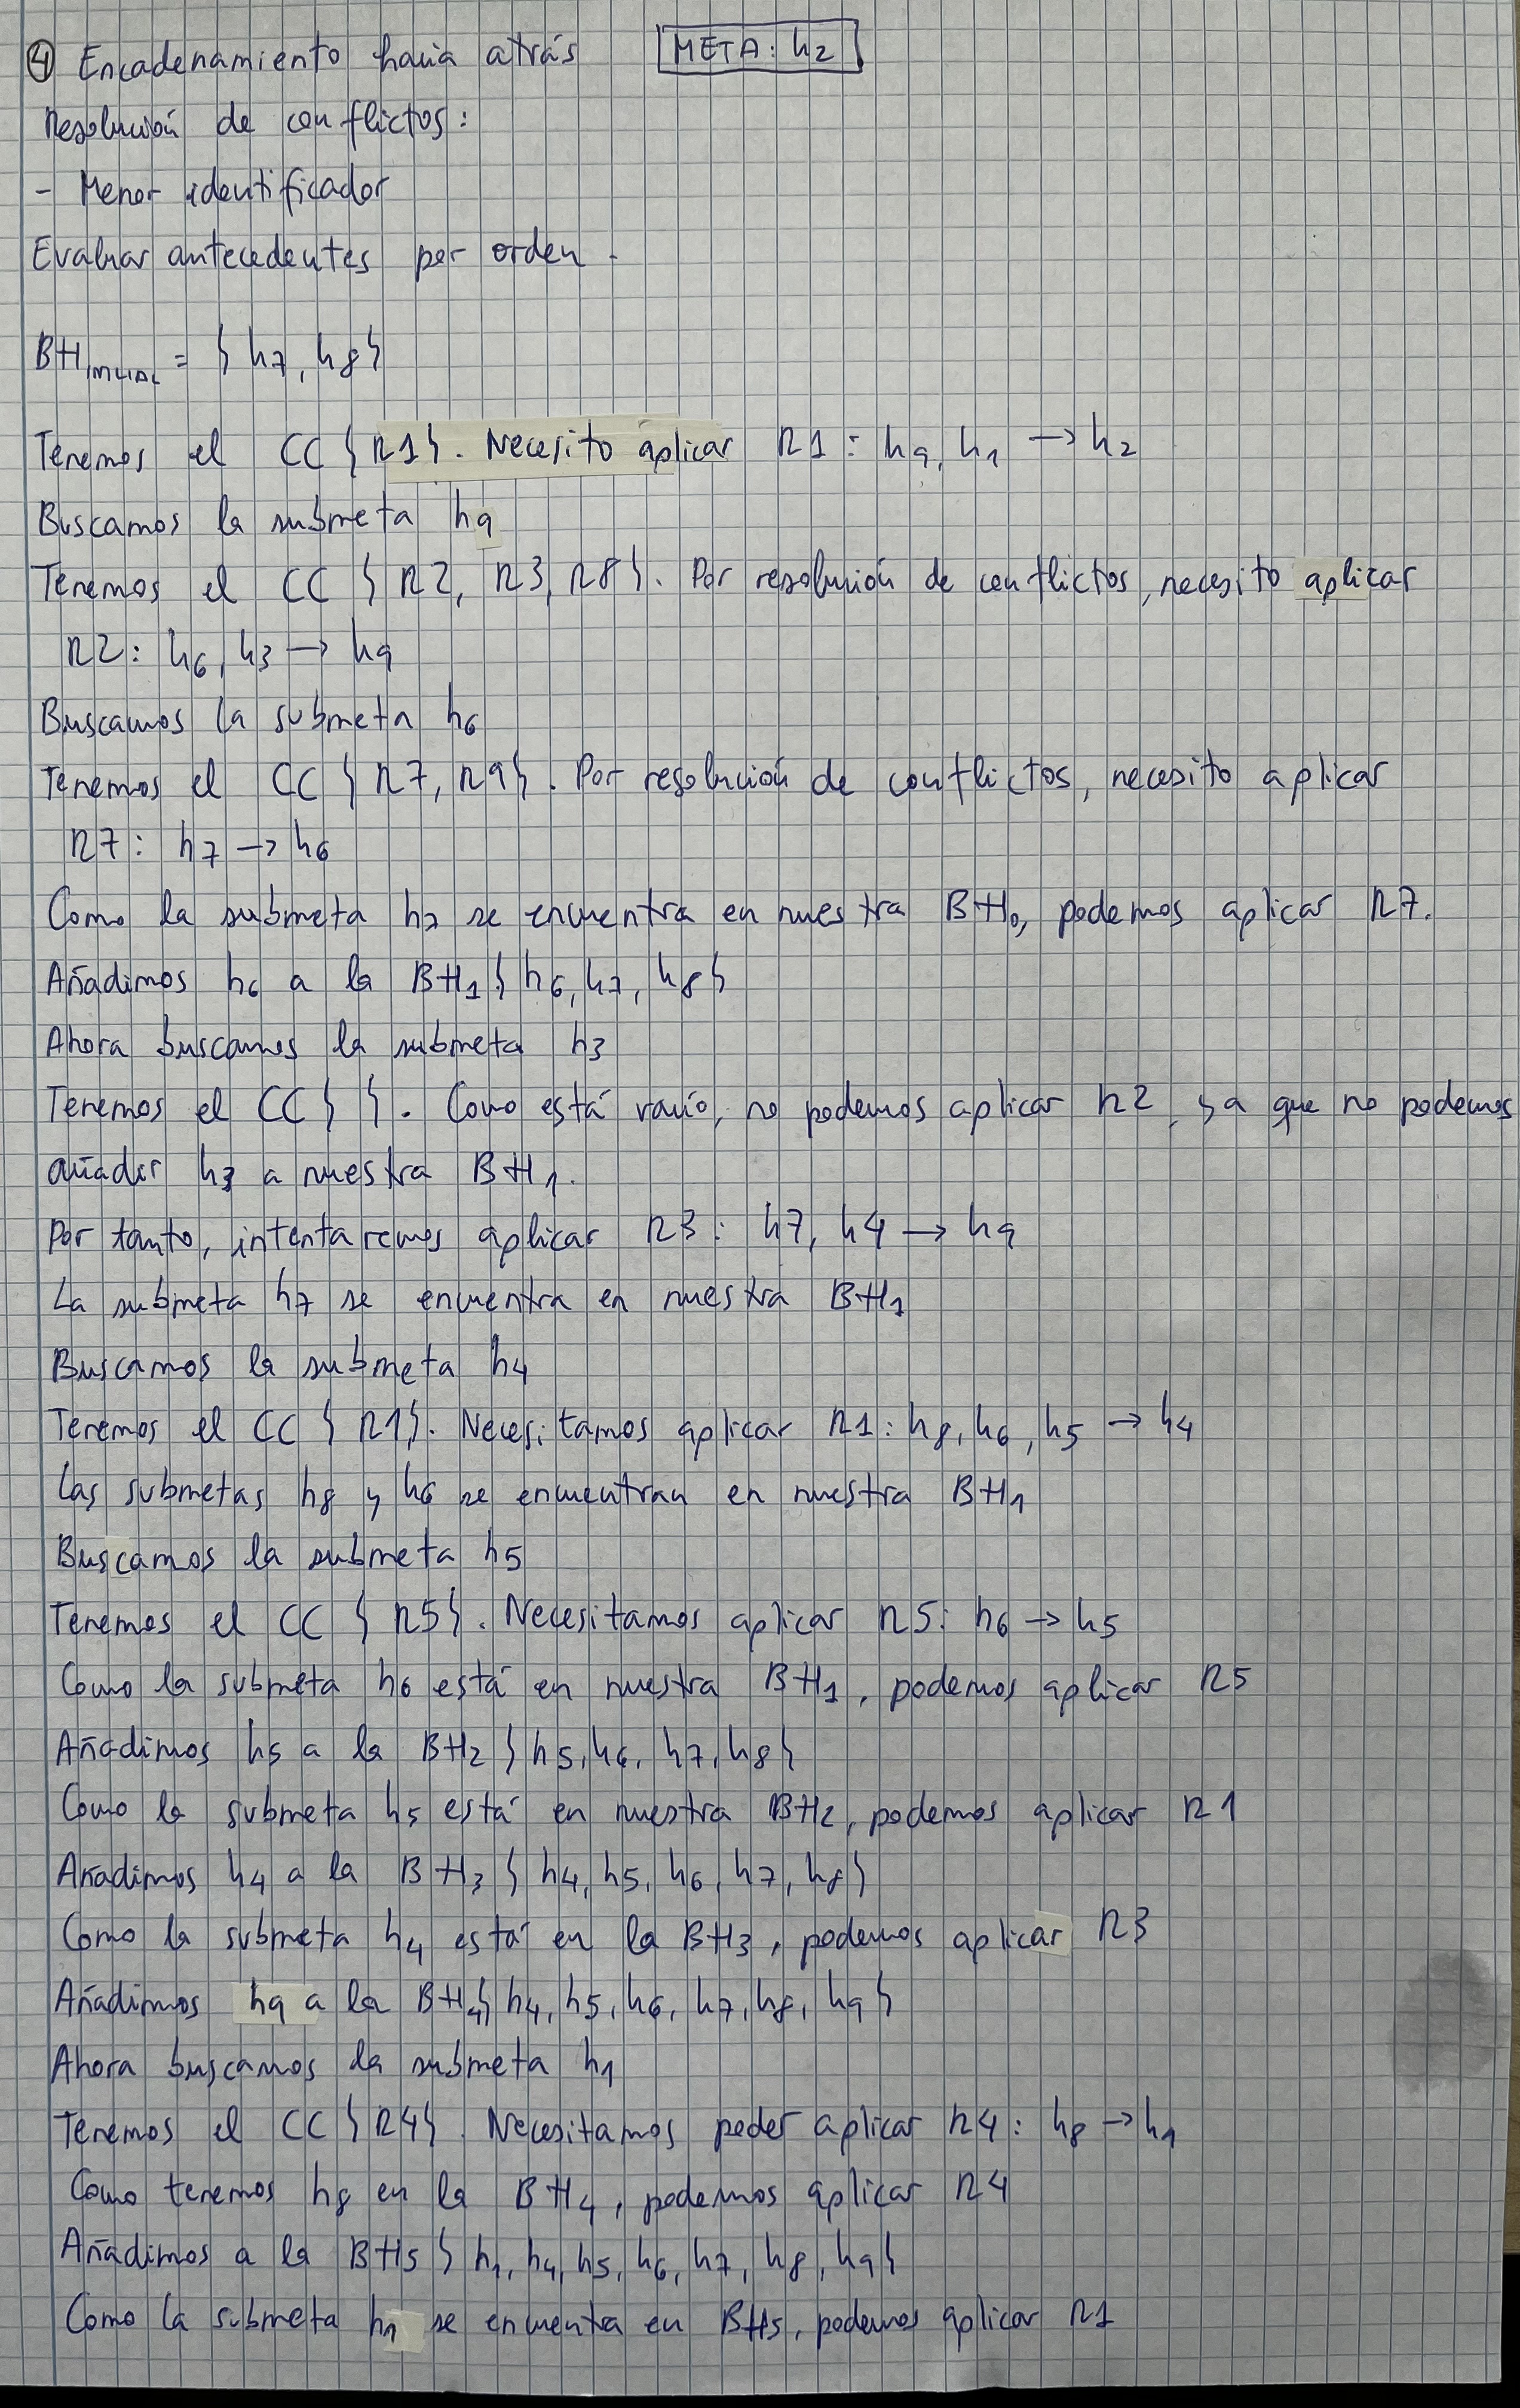 ④ Encadenamiento hacia atrás META: h2
Resolución de conflictos:
- Menor identificador
Evaluar antecedentes por orden.
BH INICIAL = { h7, h8 }
Tenemos el CC { R1 }. Necesito aplicar R1: h9, h1 → h2
Buscamos la submeta h9
Tenemos el CC { R2, R3, R8 }. Por resolución de conflictos, necesito aplicar
R2: h6, h3 → h9
Buscamos la submeta h6
Tenemos el CC { R7, R9 }. Por resolución de conflictos, necesito aplicar
R7: h7 → h6
Como la submeta h7 se encuentra en nuestra BH0, podemos aplicar R7.
Añadimos h6 a la BH1 { h6, h7, h8 }
Ahora buscamos la submeta h3
Tenemos el CC { }. Como está vacío, no podemos aplicar R2, ya que no podemos
añadir h3 a nuestra BH1.
Por tanto, intentaremos aplicar R3: h7, h4 → h9
La submeta h7 se encuentra en nuestra BH1
Buscamos la submeta h4
Tenemos el CC { R1 }. Necesitamos aplicar R1: h8, h6, h5 → h4
Las submetas h8 y h6 se encuentran en nuestra BH1
Buscamos la submeta h5
Tenemos el CC { R5 }. Necesitamos aplicar R5: h6 → h5
Como la submeta h6 está en nuestra BH1, podemos aplicar R5
Añadimos h5 a la BH2 { h5, h6, h7, h8 }
Como la submeta h5 está en nuestra BH2, podemos aplicar R1
Añadimos h4 a la BH3 { h4, h5, h6, h7, h8 }
Como la submeta h4 está en la BH3, podemos aplicar R3
Añadimos h9 a la BH4 { h4, h5, h6, h7, h8, h9 }
Ahora buscamos la submeta h1
Tenemos el CC { R4 }. Necesitamos poder aplicar R4: h8 → h1
Como tenemos h8 en la BH4, podemos aplicar R4
Añadimos a la BH5 { h1, h4, h5, h6, h7, h8, h9 }
Como la submeta h1 se encuentra en BH5, podemos aplicar R1